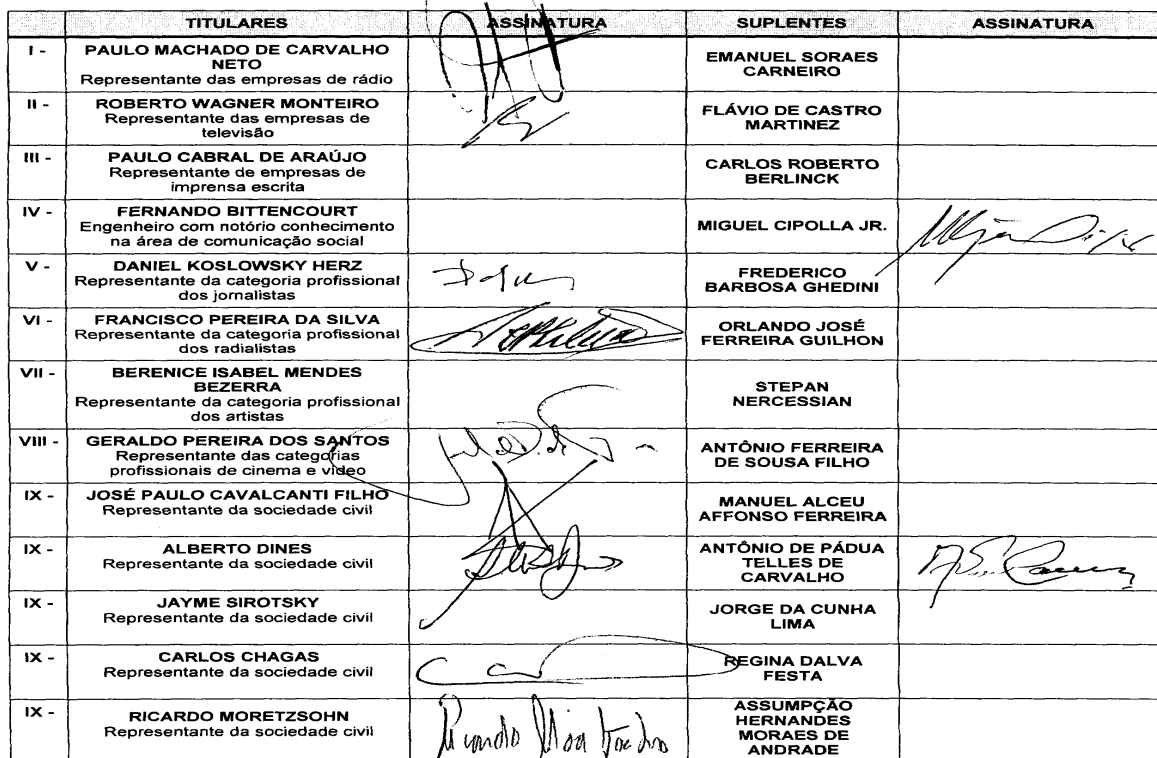 TITULARES ASSINATURA SUPLENTES ASSINATURA
I - PAULO MACHADO DE CARVALHO
NETO
Representante das empresas de rádio
EMANUEL SORAES
CARNEIRO
II - ROBERTO WAGNER MONTEIRO
Representante das empresas de
televisão
FLÁVIO DE CASTRO
MARTINEZ
III - PAULO CABRAL DE ARAÚJO
Representante de empresas de
imprensa escrita
CARLOS ROBERTO
BERLINCK
IV - FERNANDO BITTENCOURT
Engenheiro com notório conhecimento
na área de comunicação social
MIGUEL CIPOLLA JR.
V - DANIEL KOSLOWSKY HERZ
Representante da categoria profissional
dos jornalistas
FREDERICO
BARBOSA GHEDINI
VI - FRANCISCO PEREIRA DA SILVA
Representante da categoria profissional
dos radialistas
ORLANDO JOSÉ
FERREIRA GUILHON
VII - BERENICE ISABEL MENDES
BEZERRA
Representante da categoria profissional
dos artistas
STEPAN
NERCESSIAN
VIII - GERALDO PEREIRA DOS SANTOS
Representante das categorias
profissionais de cinema e vídeo
ANTÔNIO FERREIRA
DE SOUSA FILHO
IX - JOSÉ PAULO CAVALCANTI FILHO
Representante da sociedade civil
MANUEL ALCEU
AFFONSO FERREIRA
IX - ALBERTO DINES
Representante da sociedade civil
ANTÔNIO DE PÁDUA
TELLES DE
CARVALHO
IX - JAYME SIROTSKY
Representante da sociedade civil
JORGE DA CUNHA
LIMA
IX - CARLOS CHAGAS
Representante da sociedade civil
REGINA DALVA
FESTA
IX - RICARDO MORETZSOHN
Representante da sociedade civil
ASSUMPÇÃO
HERNANDES
MORAES DE
ANDRADE